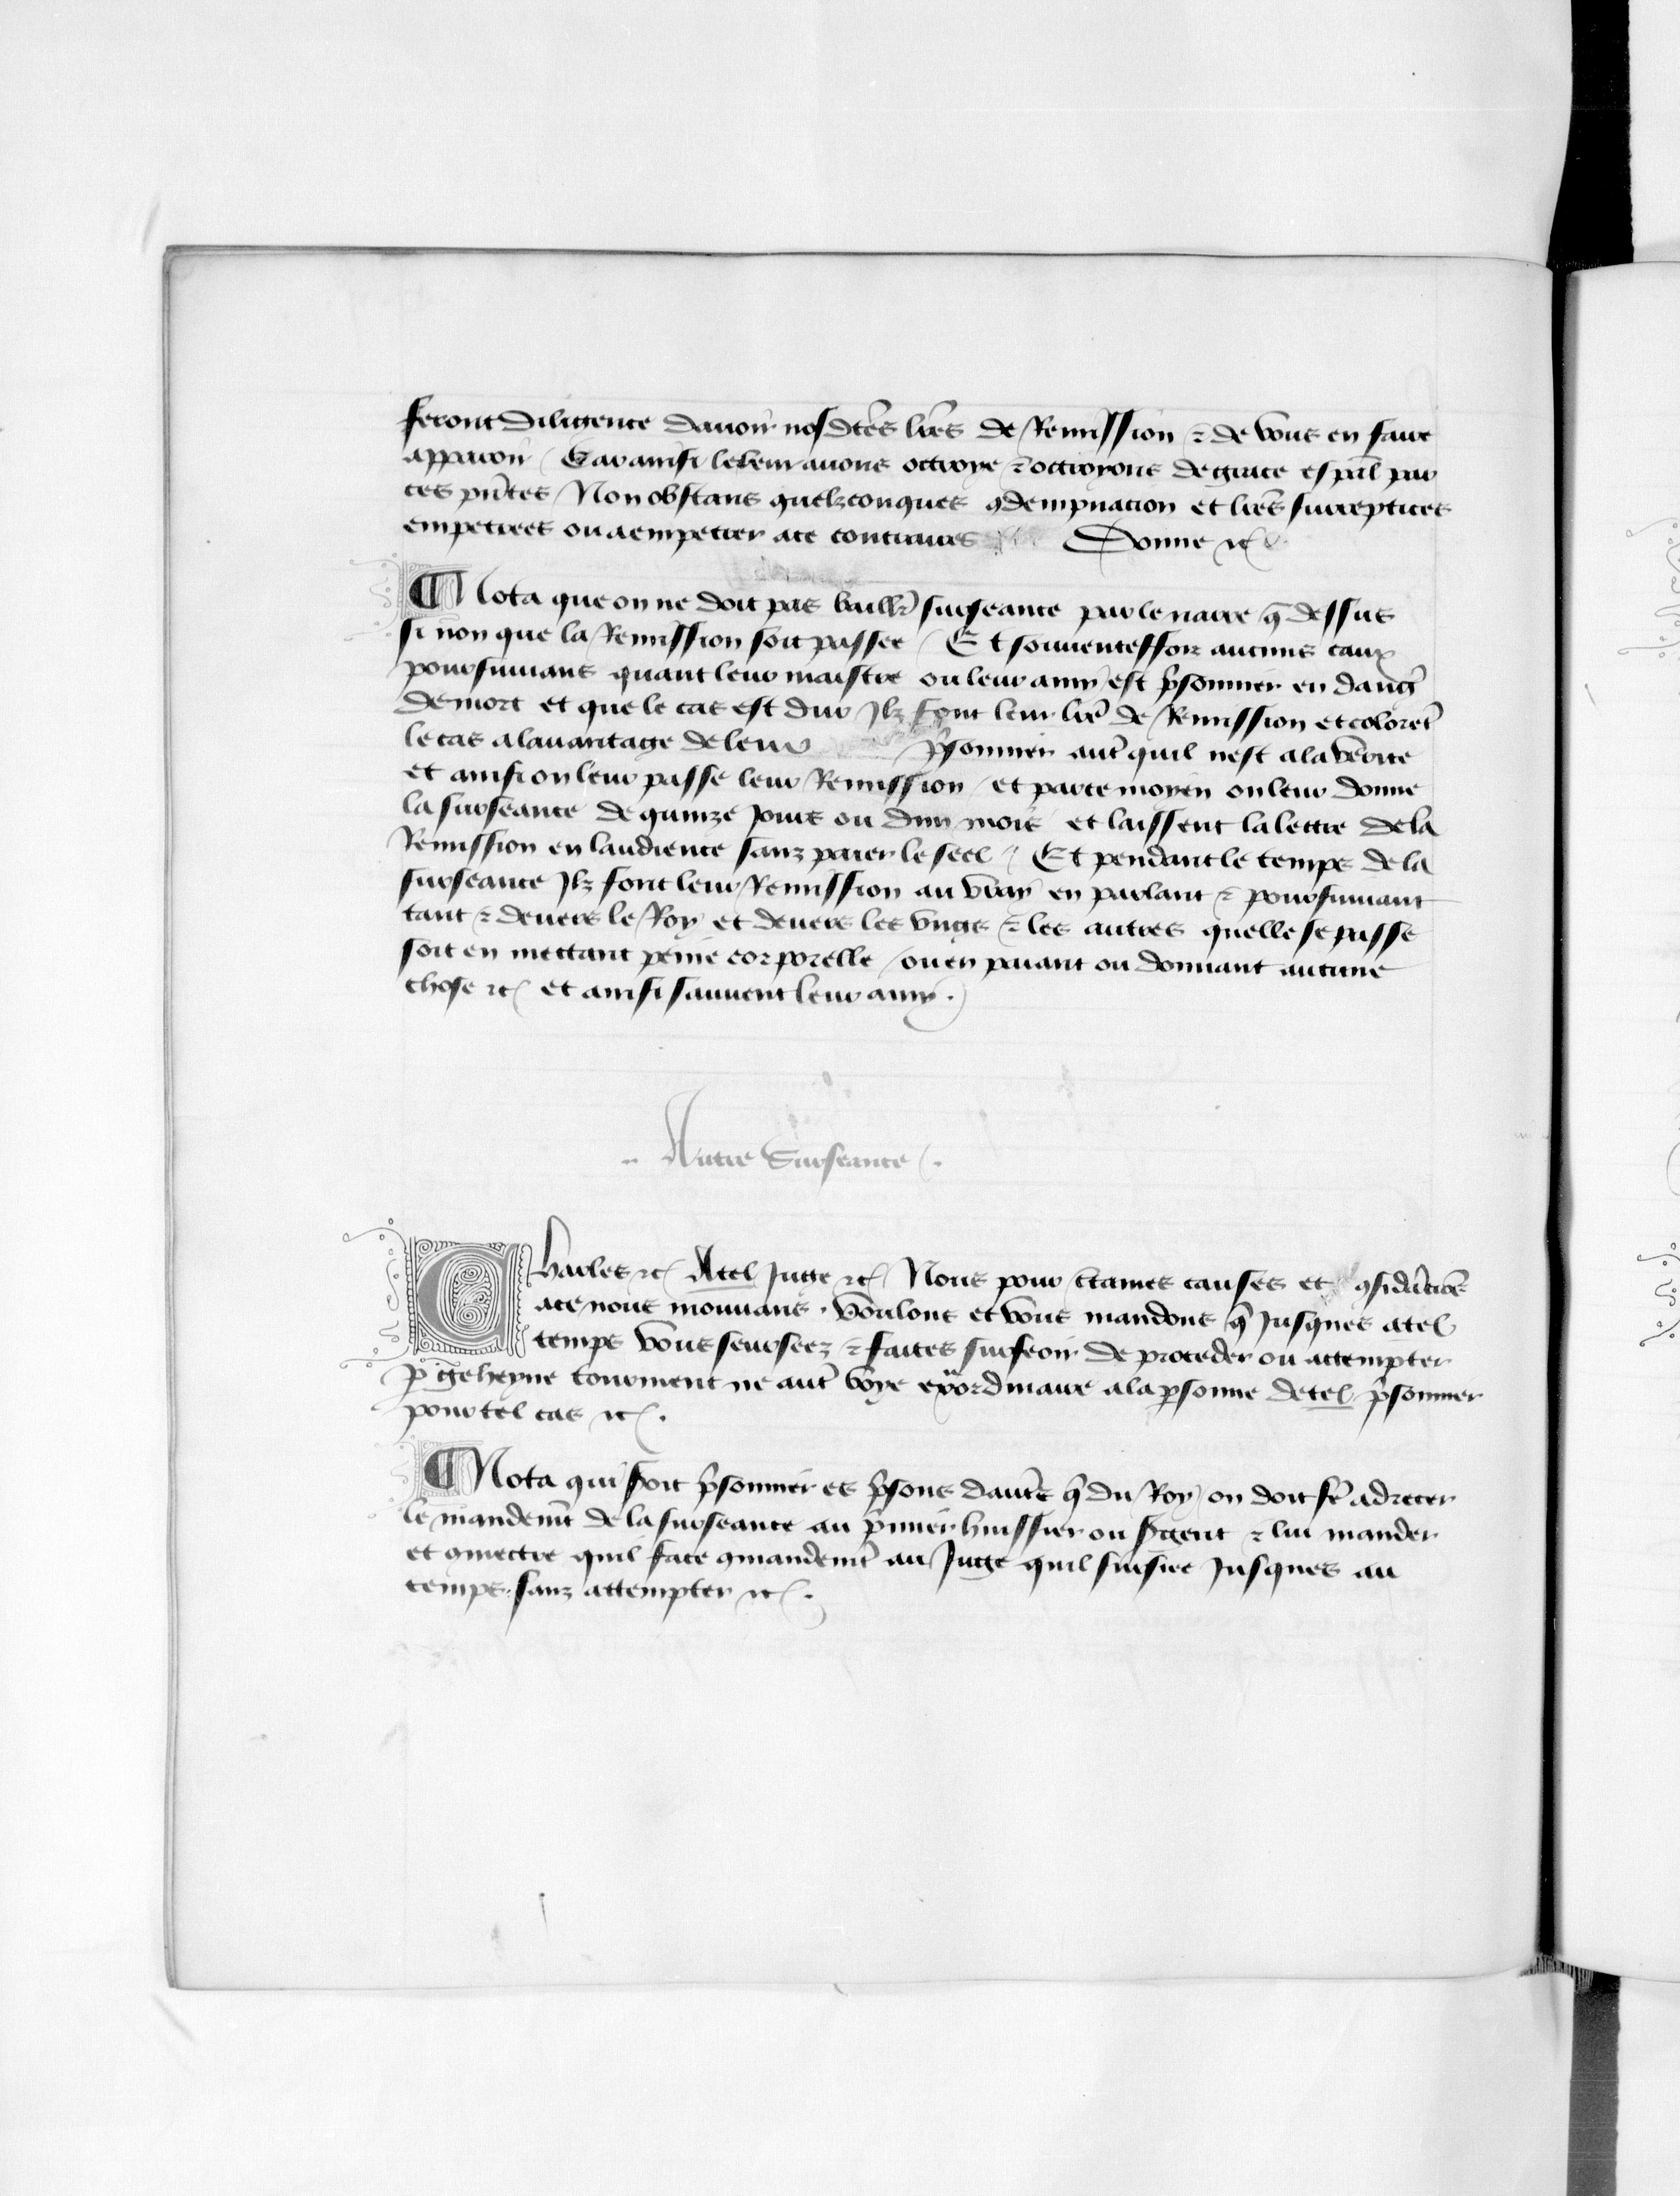 feront diligence dauoir nosdctēs lrēs de Remission ⁊ de vous en faire
apparoir Car ainsi le leur auons octroye ⁊ octroyons de grace espāl par
ces pñtes Non obstans quelzconques ꝯdempnacion et lrēs surreptices
empetrees ou a empetrer a ce contraires Donne ⁊c
¶ Nota que on ne doit pas baillr̄ surseance par le narre q̄ dessus
si non que la Remission soit passee Et souuentesfoiz aucuns caux
poursuiuans quant leur maistre ou leur amy est p̄sonnier en danḡ
de mort et que le cas est dur Ilz font leur lrē de Remission et coloret̄
le cas a lauantage de leur p̄sonnier aut̄ quil nest a la v̄erite
et ainsi on leur passe leur Remission et par ce moyen on leur donne
la surseance de quinze jours ou dun mois et laissent la lettre de la
Remission en laudience sanz paier le seel Et pendant le temps de la
surseance Ilz font leur Remission au vray en parlant ⁊ poursuiuant
tant ⁊ deuers le Roy et deuers les vngs ⁊ les autres quelle se passe
soit en mettant peine corporelle ou en paiant ou donnant aucune
chose ⁊c et ainsi sauuent leur amy .
.. Autre Surseance .
Charles ⁊c A tel Juge ⁊c Nous pour c̄taines causes et ꝯsideracions
a ce nous mouuans . voulons et vous mandons q̄ Jusques a tel
temps vous surseez ⁊ faites surseoir de proceder ou attempter
p̲ geheyne tourment ne aut̄ voye ex̄ordinaire a la psonne de tel p̄sonnier
pour tel cas ⁊c .
¶ Nota qui soit p̄sonnier es p̄sons dautr̄e q̄ du Roy on doit fr̄e adrecer
le mandemt̄ de la surseance au p̄mier huissier ou s̄gent ⁊ lui mander
et ꝯmectre quil face ꝯmandemt̄ au Juge quil sursiee Jusques au
temps . sanz attempter ⁊c .